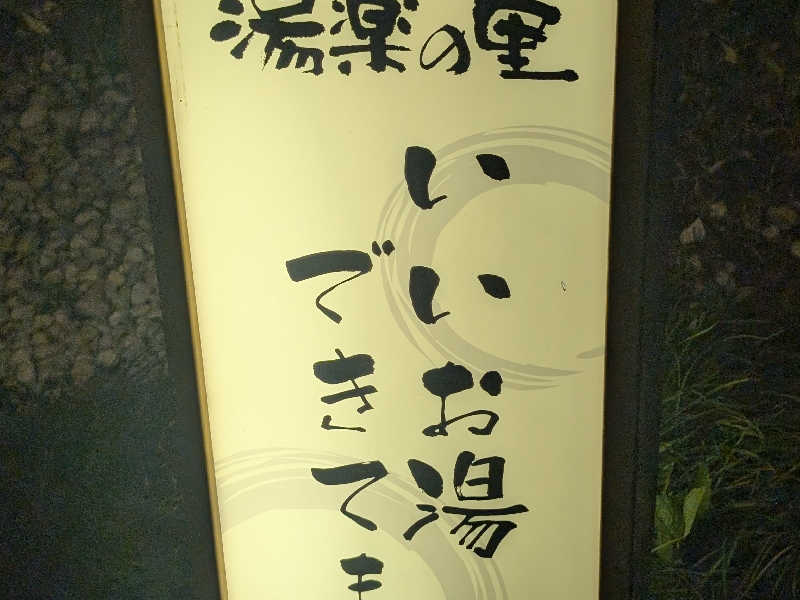 湯楽の里
いいお湯
できてま